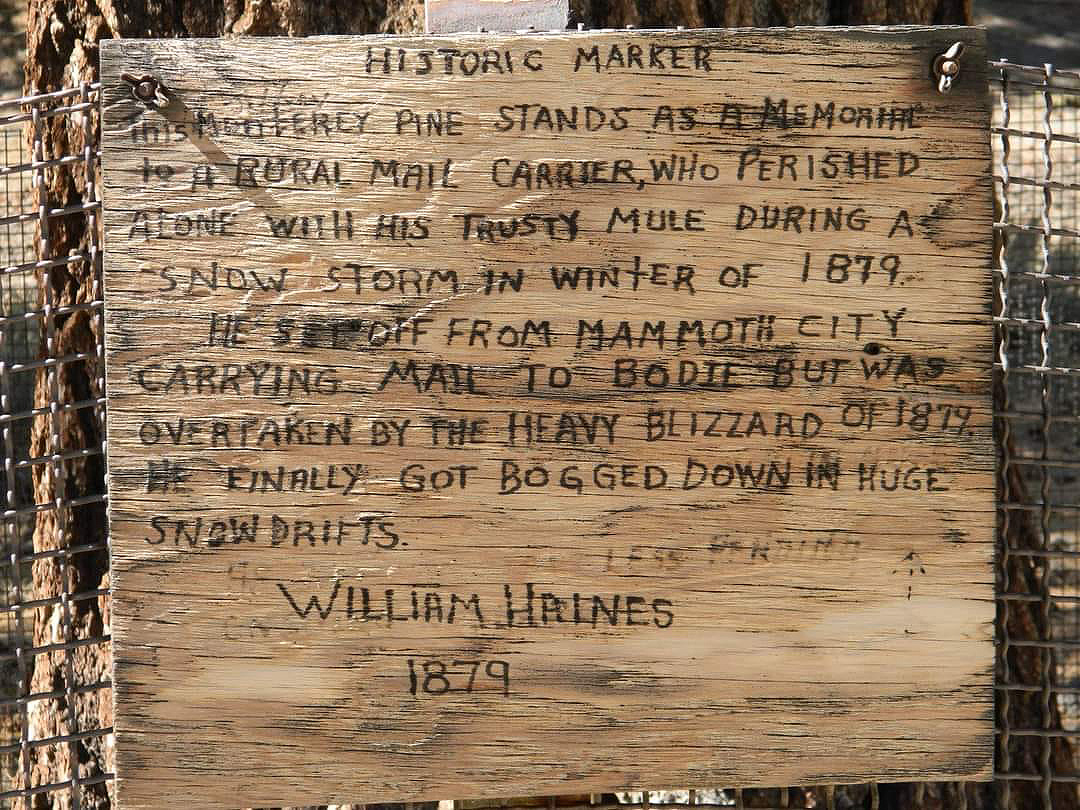 HISTORIC MARKER
This MONTEREY PINE STANDS AS A MEMORIAL
to A RURAL MAIL CARRIER, WHO PERISHED
ALONE WITH HIS TRUSTY MULE DURING A
SNOW STORM IN WINTER OF 1879.
HE SET OFF FROM MAMMOTH CITY
CARRYING MAIL TO BODIE BUT WAS
OVERTAKEN BY THE HEAVY BLIZZARD OF 1879.
HE FINALLY GOT BOGGED DOWN IN HUGE
SNOWDRIFTS.
WILLIAM HAINES
1879